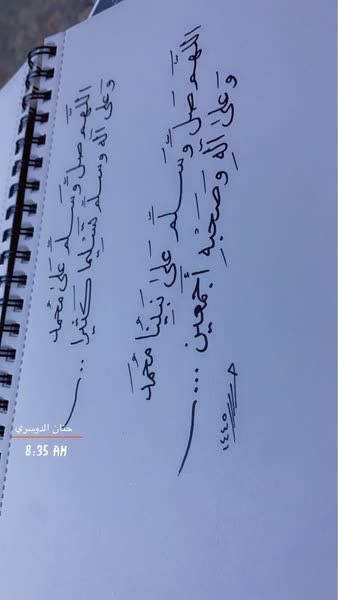 اللهم صل وسلم على نبينا محمد
وعلى آله وصحبه أجمعين ...
اللهم صل وسلم على محمد
وعلى آله وسلم تسليما كثيرا ...
١٤٤٥
حنان الدوسري
8:35 AM